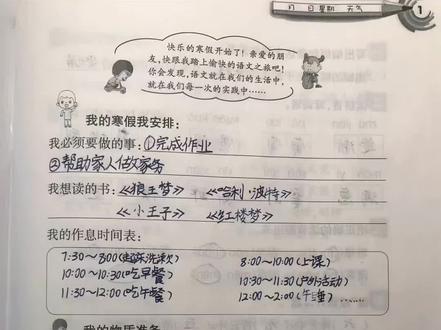 月 日 星期 天气
1
快乐的寒假开始了！亲爱的朋
友，快跟我踏上愉快的语文之旅吧！
你会发现，语文就在我们的生活中，
就在我们每一次的实践中……
我的寒假我安排：
我必须要做的事：①完成作业
②帮助家人做家务
我想读的书：《狼王梦》 《哈利·波特》
《小王子》 《红楼梦》
我的作息时间表：
7:30～8:00(起床洗漱) 8:00～10:00(上课)
10:00～10:30(吃早餐) 10:30～11:30(户外活动)
11:30～12:00(吃午餐) 12:00～2:00(午睡) ……
我的物质准备